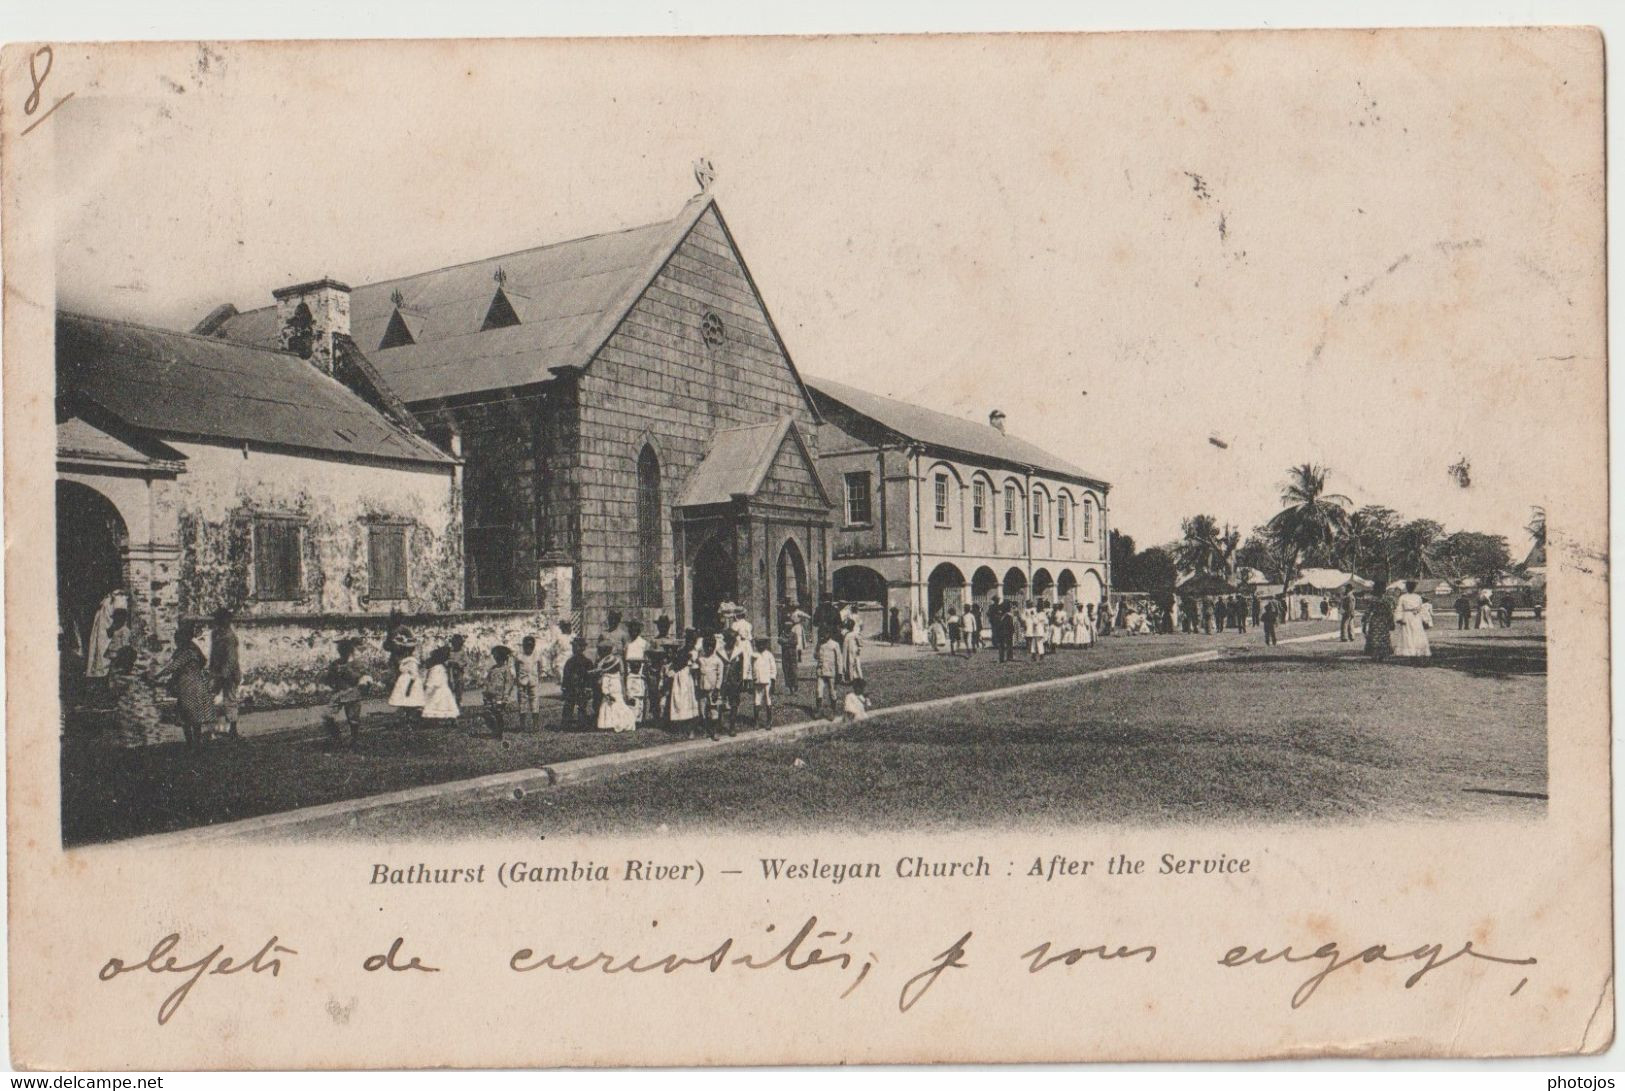 8
Bathurst (Gambia River) — Wesleyan Church : After the Service
objets de curiosités, je vous engage,
www.delcampe.net
photojos